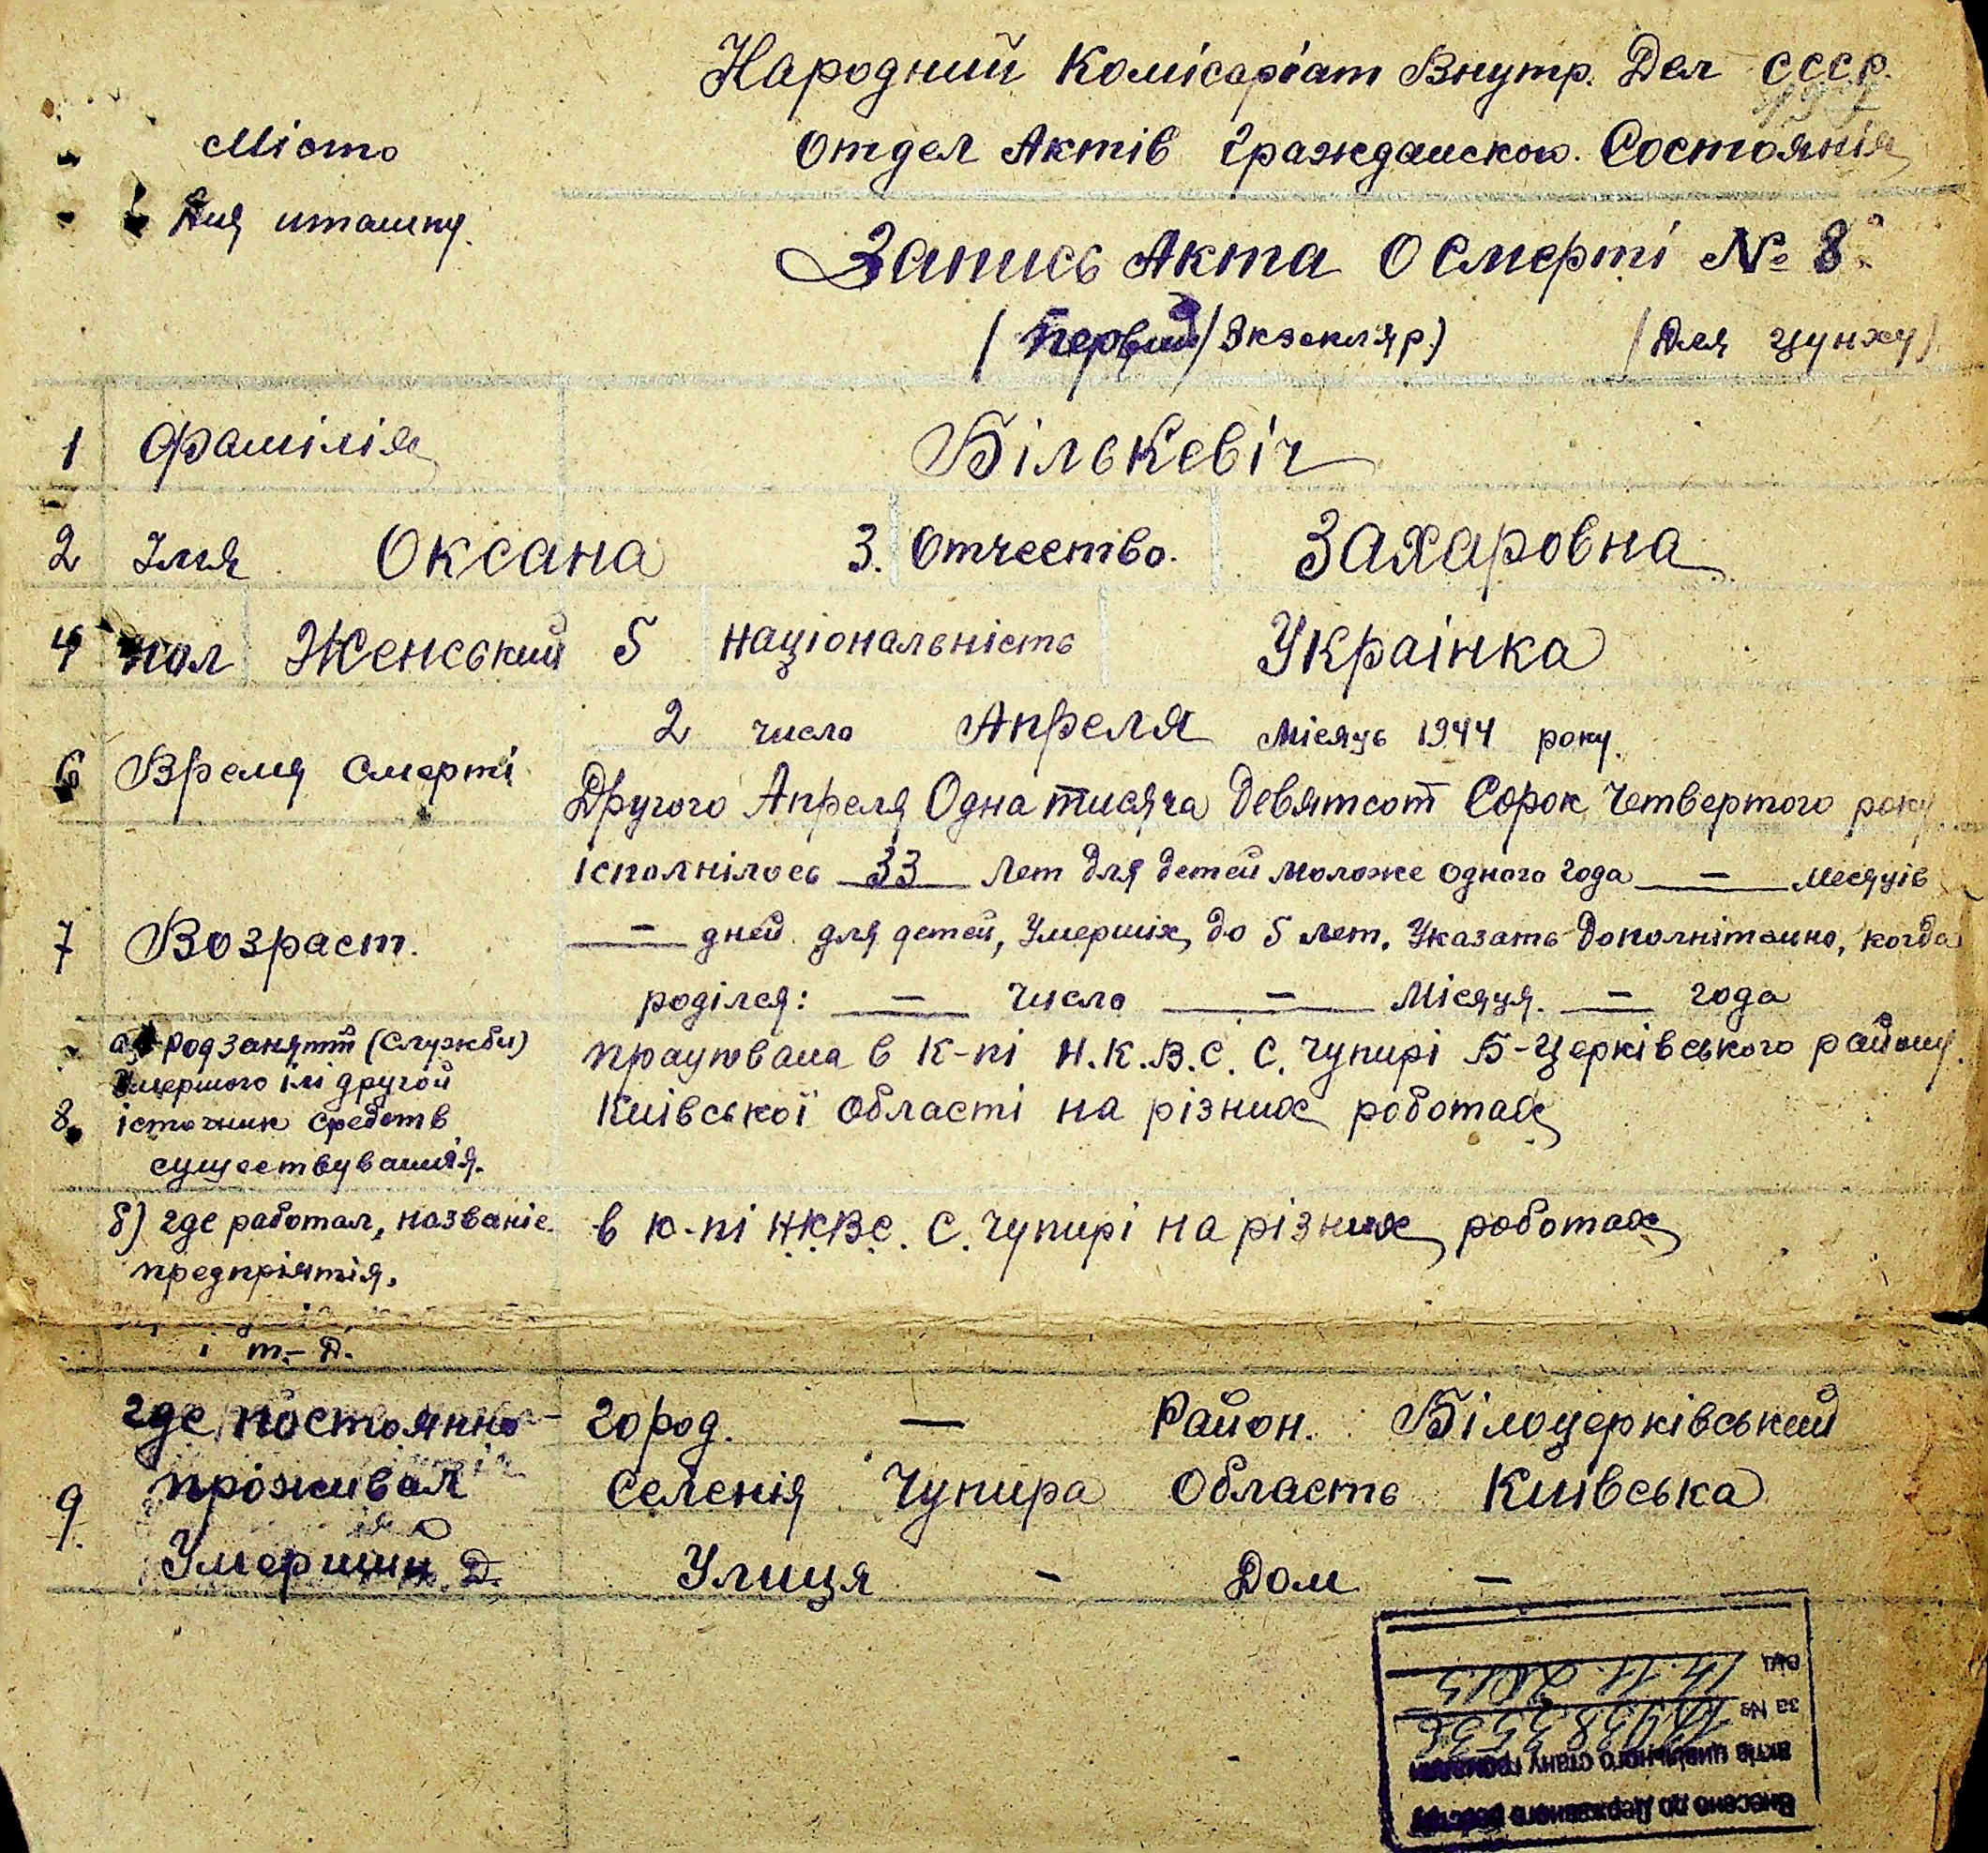 Народний Комісаріат Внутр. Дел СССР.
Отдел Актів Гражданского. Состоянія
Місто
Для штампу.
Запись Акта О Смерті № 8
(Первий) Экземпляр.)
(Для ЦУНХУ)
1 Фамілія Бількевіч
2 Імя Оксана 3. Отчество. Захаровна
4 пол Женський 5 Національність Украінка
6 Время Смерті
2 число Апреля Місяць 1944 року.
Другого Апреля Одна тисяча Девятсот Сорок Четвертого року
7 Возраст.
Ісполнілось 33 Лет для детей моложе одного года — месяців
— дней для детей, Умерших, до 5 лет. Указать Дополнітєльно, когда
роділся: — Число — Місяця. — года
8.
а) Род занятт (Служби)
Умершого ілі другой
істочник средств
существування.
працювала в К-пі Н.К.В.С. С. Чупирі Б-Церківського району.
Київської області на різних роботах
б) где работал, названіе
предпріятія,
і т-д.
в к-пі НКВС. С. Чупирі на різних роботах
9.
где постоянно
проживал
Умерший
Город. — Район. Білоцерківський
Селенія Чупира Область Київська
Улиця - Дом —
Внесено до Державного реєстру
актів цивільного стану громадян
за №
від 14.11.2013